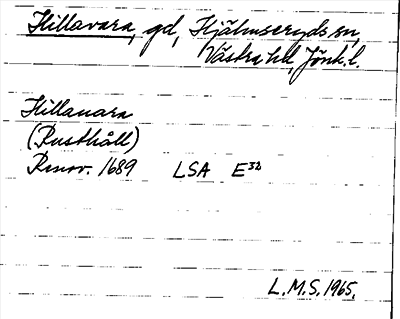 Hillavara, gd, Hjälmseryds sn,
Västra hd, Jönk. l.
Hillauara
(Rusthåll)
Renov. 1689 LSA E³²
L.M.S. 1965.